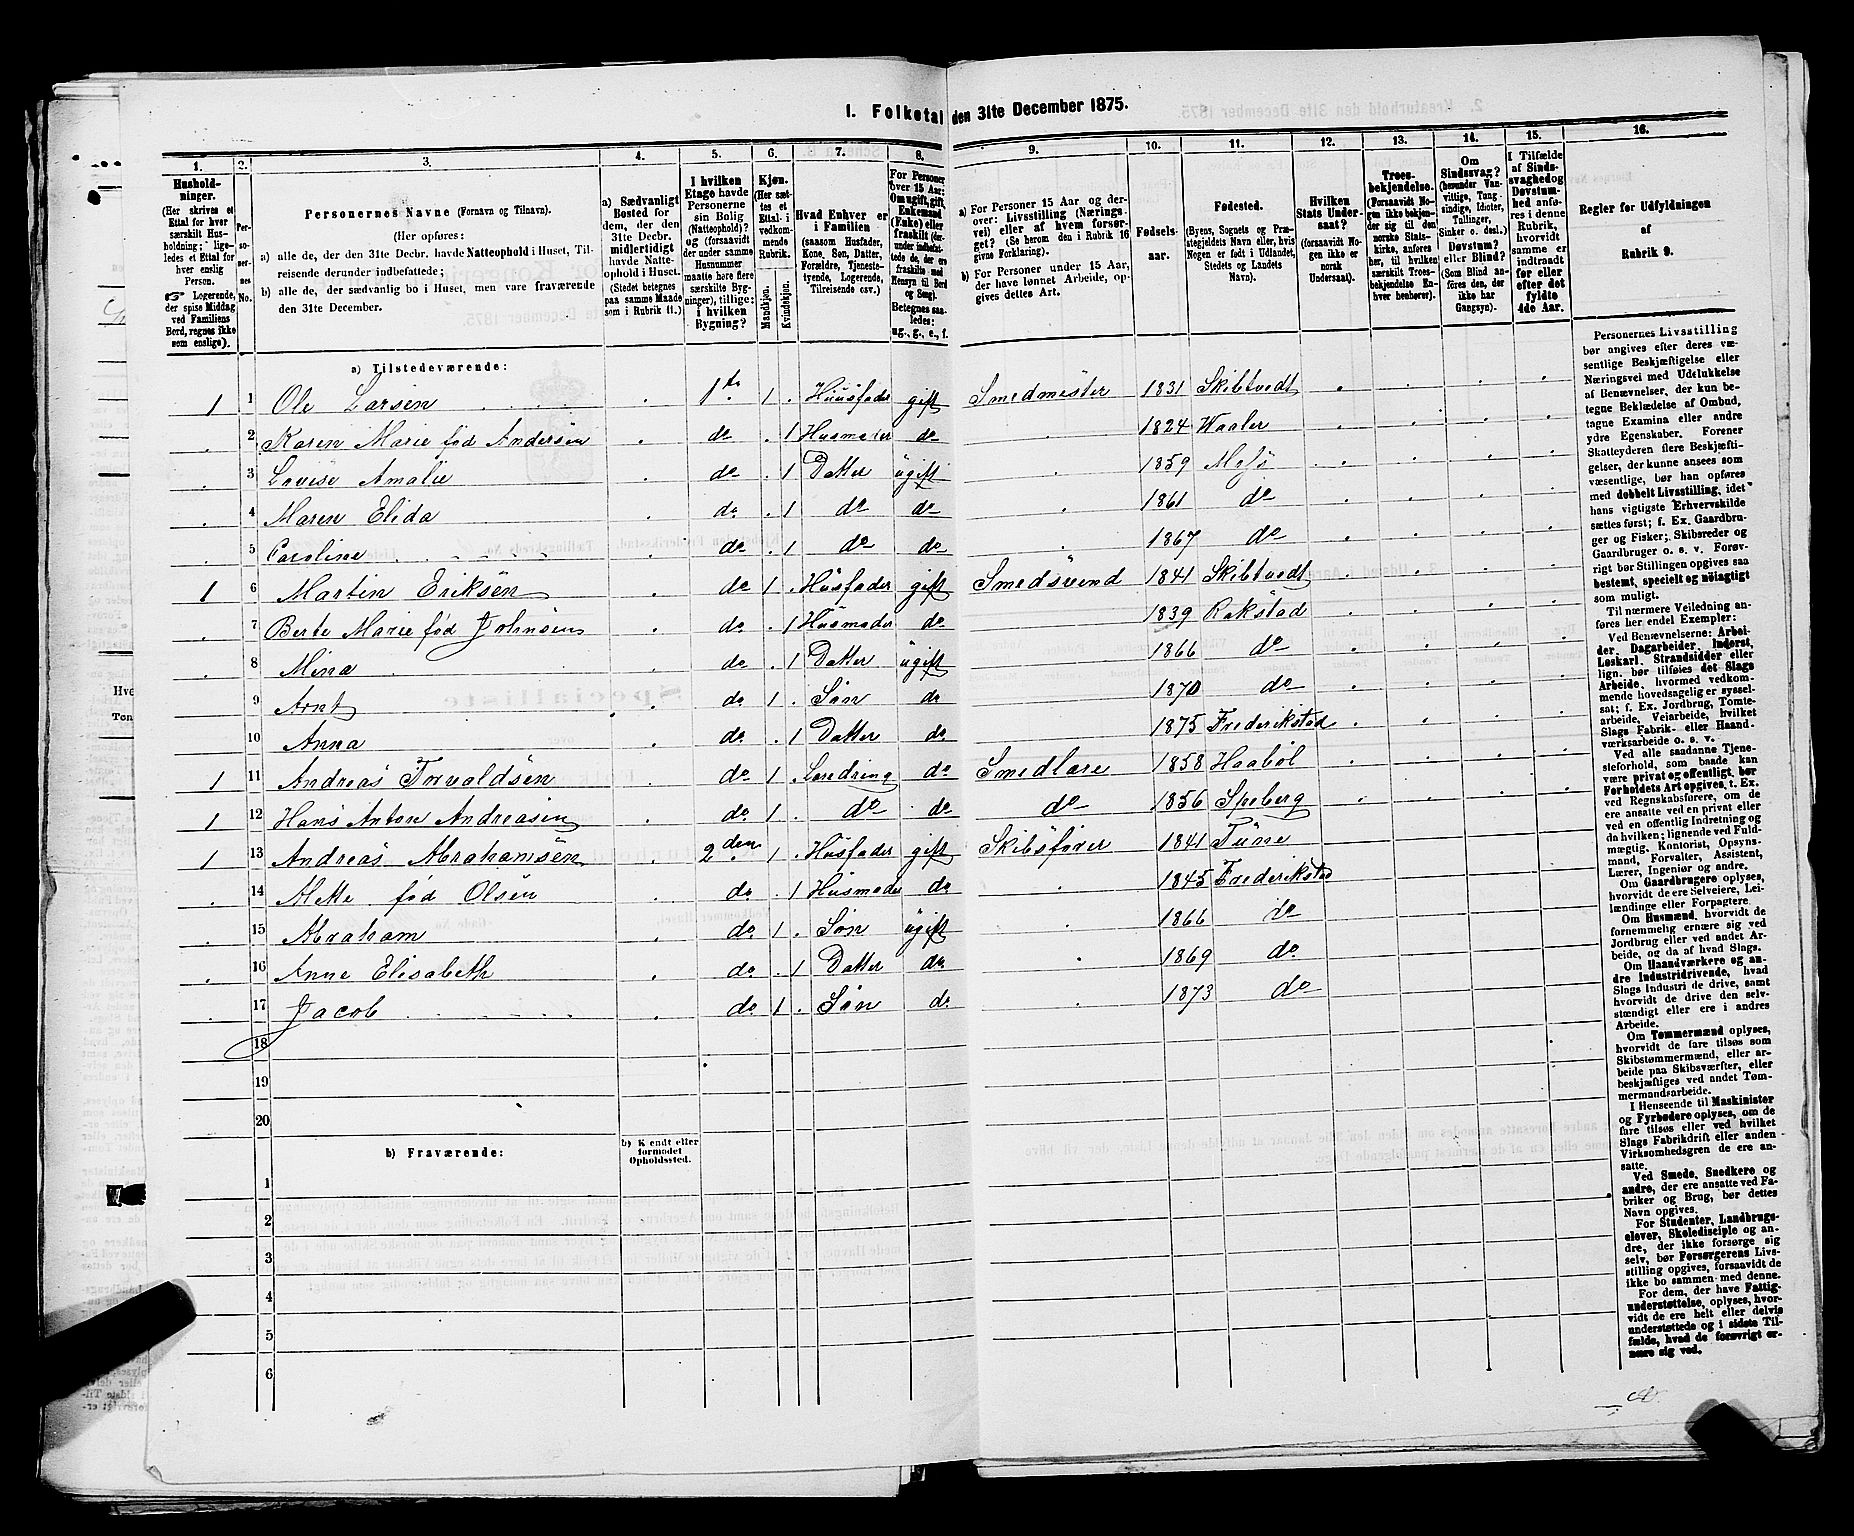 1. Folketal den 31te December 1875.
1. 2. 3. 4. 5. 6. 7. 8. 9. 10. 11. 12. 13. 14. 15. 16.
Hushold-
ninger.
(Her skrives et
Ettal for hver
særskilt Hus-
holdning; lige-
ledes et Ettal for
hver enslig
Person.
☞ Logerende,
der spise Middag
ved Familiens
Bord, regnes ikke
som enslige).
Per-
so-
ner-
nes
No.
Personernes Navne (Fornavn og Tilnavn).
(Her opføres:
a) alle de, der den 31te Decbr. havde Natteophold i Huset, Til-
reisende derunder indbefattede;
b) alle de, der sædvanlig bo i Huset, men vare fraværende
den 31te December.
a) Sædvanligt
Bosted for
dem, der den
31te Decbr.
midlertidigt
havde Natte-
ophold i Huset.
(Stedet betegnes
paa samme Maade
som i Rubrik 11.)
I hvilken
Etage havde
Personerne
sin Bolig
(Natteophold)?
og (forsaavidt
der under samme
Husnummer
maatte høre flere
særskilte Byg-
ninger), tillige:
i hvilken
Bygning?
Kjøn.
(Her sæt-
tes et
Ettal i
vedkom-
mende
Rubrik.
Mandkjøn.
Kvindekjøn.
Hvad Enhver er
i Familien
(saasom Husfader,
Kone, Søn, Datter,
Forældre, Tjeneste-
tyende, Logerende,
Tilreisende osv.)
For Personer
over 15 Aar:
Om ugift, gift,
Enkemand
(Enke) eller
fraskilt (der-
under indbefat-
tede de, der ere
fraskilte med
Hensyn til Bord
og Seng).
Betegnes saa-
ledes:
ug., g., e., f.
a) For Personer 15 Aar og der-
over: Livsstilling (Nærings-
vei) eller af hvem forsør-
get? (Se herom den i Rubrik 16
givne Forklaring).
b) For Personer under 15 Aar,
der have lønnet Arbeide, op-
gives dettes Art.
Fødsels-
aar.
Fødested.
(Byens, Sognets og Præ-
stegjeldets Navn eller, hvis
Nogen er født i Udlandet,
Stedets og Landets
Navn).
Hvilken
Stats Under-
saat?
(forsaavidt No-
gen ikke er
norsk
Undersaat).
Troes-
bekjendelse.
(Forsaavidt No-
gen ikke bekjen-
der sig til den
norske Stats-
kirke, anføres
her, til hvilken
særskilt Troes-
bekjendelse En-
hver henhører).
Om
Sindssvag?
(herunder Van-
vittige, Tung-
sindige, Idioter,
Tullinger,
Sinker o. desl.)
Døvstum?
eller Blind?
(Som Blind an-
føres den, der
ikke har
Gangsyn).
I Tilfælde
af Sinds-
svaghed og
Døvstum-
hed anfø-
res i denne
Rubrik,
hvorvidt
samme er
indtraadt
før eller
efter det
fyldte
4de Aar.
Regler for Udfyldningen
af
Rubrik 9.
a) Tilstedeværende:
1 1 Ole Larsen 1te 1 . Huusfader gift Smedmester 1831 Skibtvedt
2 Karen Marie fød Andersen do . 1 Husmoder do 1824 Waaler
3 Lovise Amalie do . 1 Datter ugift 1859 Moss
4 Maren Elida do . 1 do do 1861 do
5 Caroline do . 1 do do 1867 do
1 6 Martin Eriksen do 1 . Husfader gift Smedsvend 1841 Skibtvedt
7 Berte Marie fød Johnsen do . 1 Husmoder do 1839 Rakstad
8 Mina do . 1 Datter ugift 1866 do
9 Arnt do 1 . Søn do 1870 do
10 Anna do . 1 Datter do 1875 Frederikstad
1 11 Andreas Torvaldsen do 1 . Loredring do Smedlare 1858 Haabøl
1 12 Hans Anton Andreasen do 1 . do do do 1856 Speberg
1 13 Andreas Abrahamsen 2den 1 . Husfader gift Skibsfører 1841 Tune
14 Mette fød Olsen do . 1 Husmoder do 1845 Frederikstad
15 Abraham do 1 . Søn ugift 1866 do
16 Anne Elisabeth do . 1 Datter do 1869 do
17 Jacob do 1 . Søn do 1873 do
18
19
20
b) Fraværende:
b) Kjendt eller
formodet
Opholdssted.
1
2
3
4
5
6
Personernes Livsstilling
bør angives efter deres væ-
sentlige Beskjæftigelse eller
Næringsvei med Udelukkelse
af Benævnelser, der kun be-
tegne Beklædelse af Ombud,
tagne Examina eller andre
ydre Egenskaber. Forener
Skatteyderen flere Beskjæfti-
gelser, der kunne ansees som
væsentlige, bør han opføres
med dobbelt Livsstilling, idet
hans vigtigste Erhvervskilde
sættes først; f. Ex. Gaardbru-
ger og Fisker; Skibsreder og
Gaardbruger o. s. v. Forøv-
rigt bør Stillingen opgives saa
bestemt, specielt og nøiagtigt
som muligt.
Til nærmere Veiledning an-
føres her endel Exempler:
Ved Benævnelserne: Arbei-
der, Dagarbeider, Inderst,
Løskarl, Strandsidder eller
lign. bør tilføies det Slags
Arbeide, hvormed vedkom-
mende hovedsagelig er syssel-
sat; f. Ex. Jordbrug, Tomte-
arbeide, Veiarbeide, hvilket
Slags Fabrik- eller Haand-
værksarbeide o. s. v.
Ved alle saadanne Tjene-
steforhold, som baade kan
være privat og offentligt, bør
Forholdets Art opgives, t. Ex.
ved Regnskabsførere, om de
ere ansatte ved en privat eller
ved en offentlig Indretning og
da hvilken; lignende ved Fuld-
mægtig, Kontorist, Opsyns-
mand, Forvalter, Assistent,
Lærer, Ingeniør og andre.
Om Gaardbrugere oplyses,
hvorvidt de ere Selveiere, Lei-
lændinge eller Forpagtere.
Om Husmænd, hvorvidt de
fornemmelig ernære sig ved
Jordbrug eller ved andet Ar-
beide, og da af hvad Slags.
Om Haandværkere og an-
dre Industridrivende, hvad
Slags Industri de drive, samt
hvorvidt de drive den selv-
stændigt eller ere i andres
Arbeide.
Om Tømmermænd oplyses,
hvorvidt de fare tilsøs som
Skibstømmermænd, eller ar-
beide paa Skibsværfter, eller
beskjæftiges ved andet Tøm-
mermandsarbeide.
I Henseende til Maskinister
og Fyrbødere oplyses, om de
fare tilsøs eller ved hvilket
Slags Fabrikdrift eller anden
Virksomhedsgren de ere an-
satte.
Ved Smede, Snedkere og
andre, der ere ansatte ved Fa-
briker og Brug, bør dettes
Navn opgives.
For Studenter, Landbrugs-
elever, Skoledisciple og an-
dre, der ikke forsørge sig
selv, bør Forsørgerens Livs-
stilling opgives, forsaavidt de
ikke bo sammen med denne.
For dem, der have Fattig-
understøttelse, oplyses, hvor-
vidt de ere helt eller delvis
understøttede og i sidste Til-
fælde, hvad de forøvrigt er-
nære sig ved.